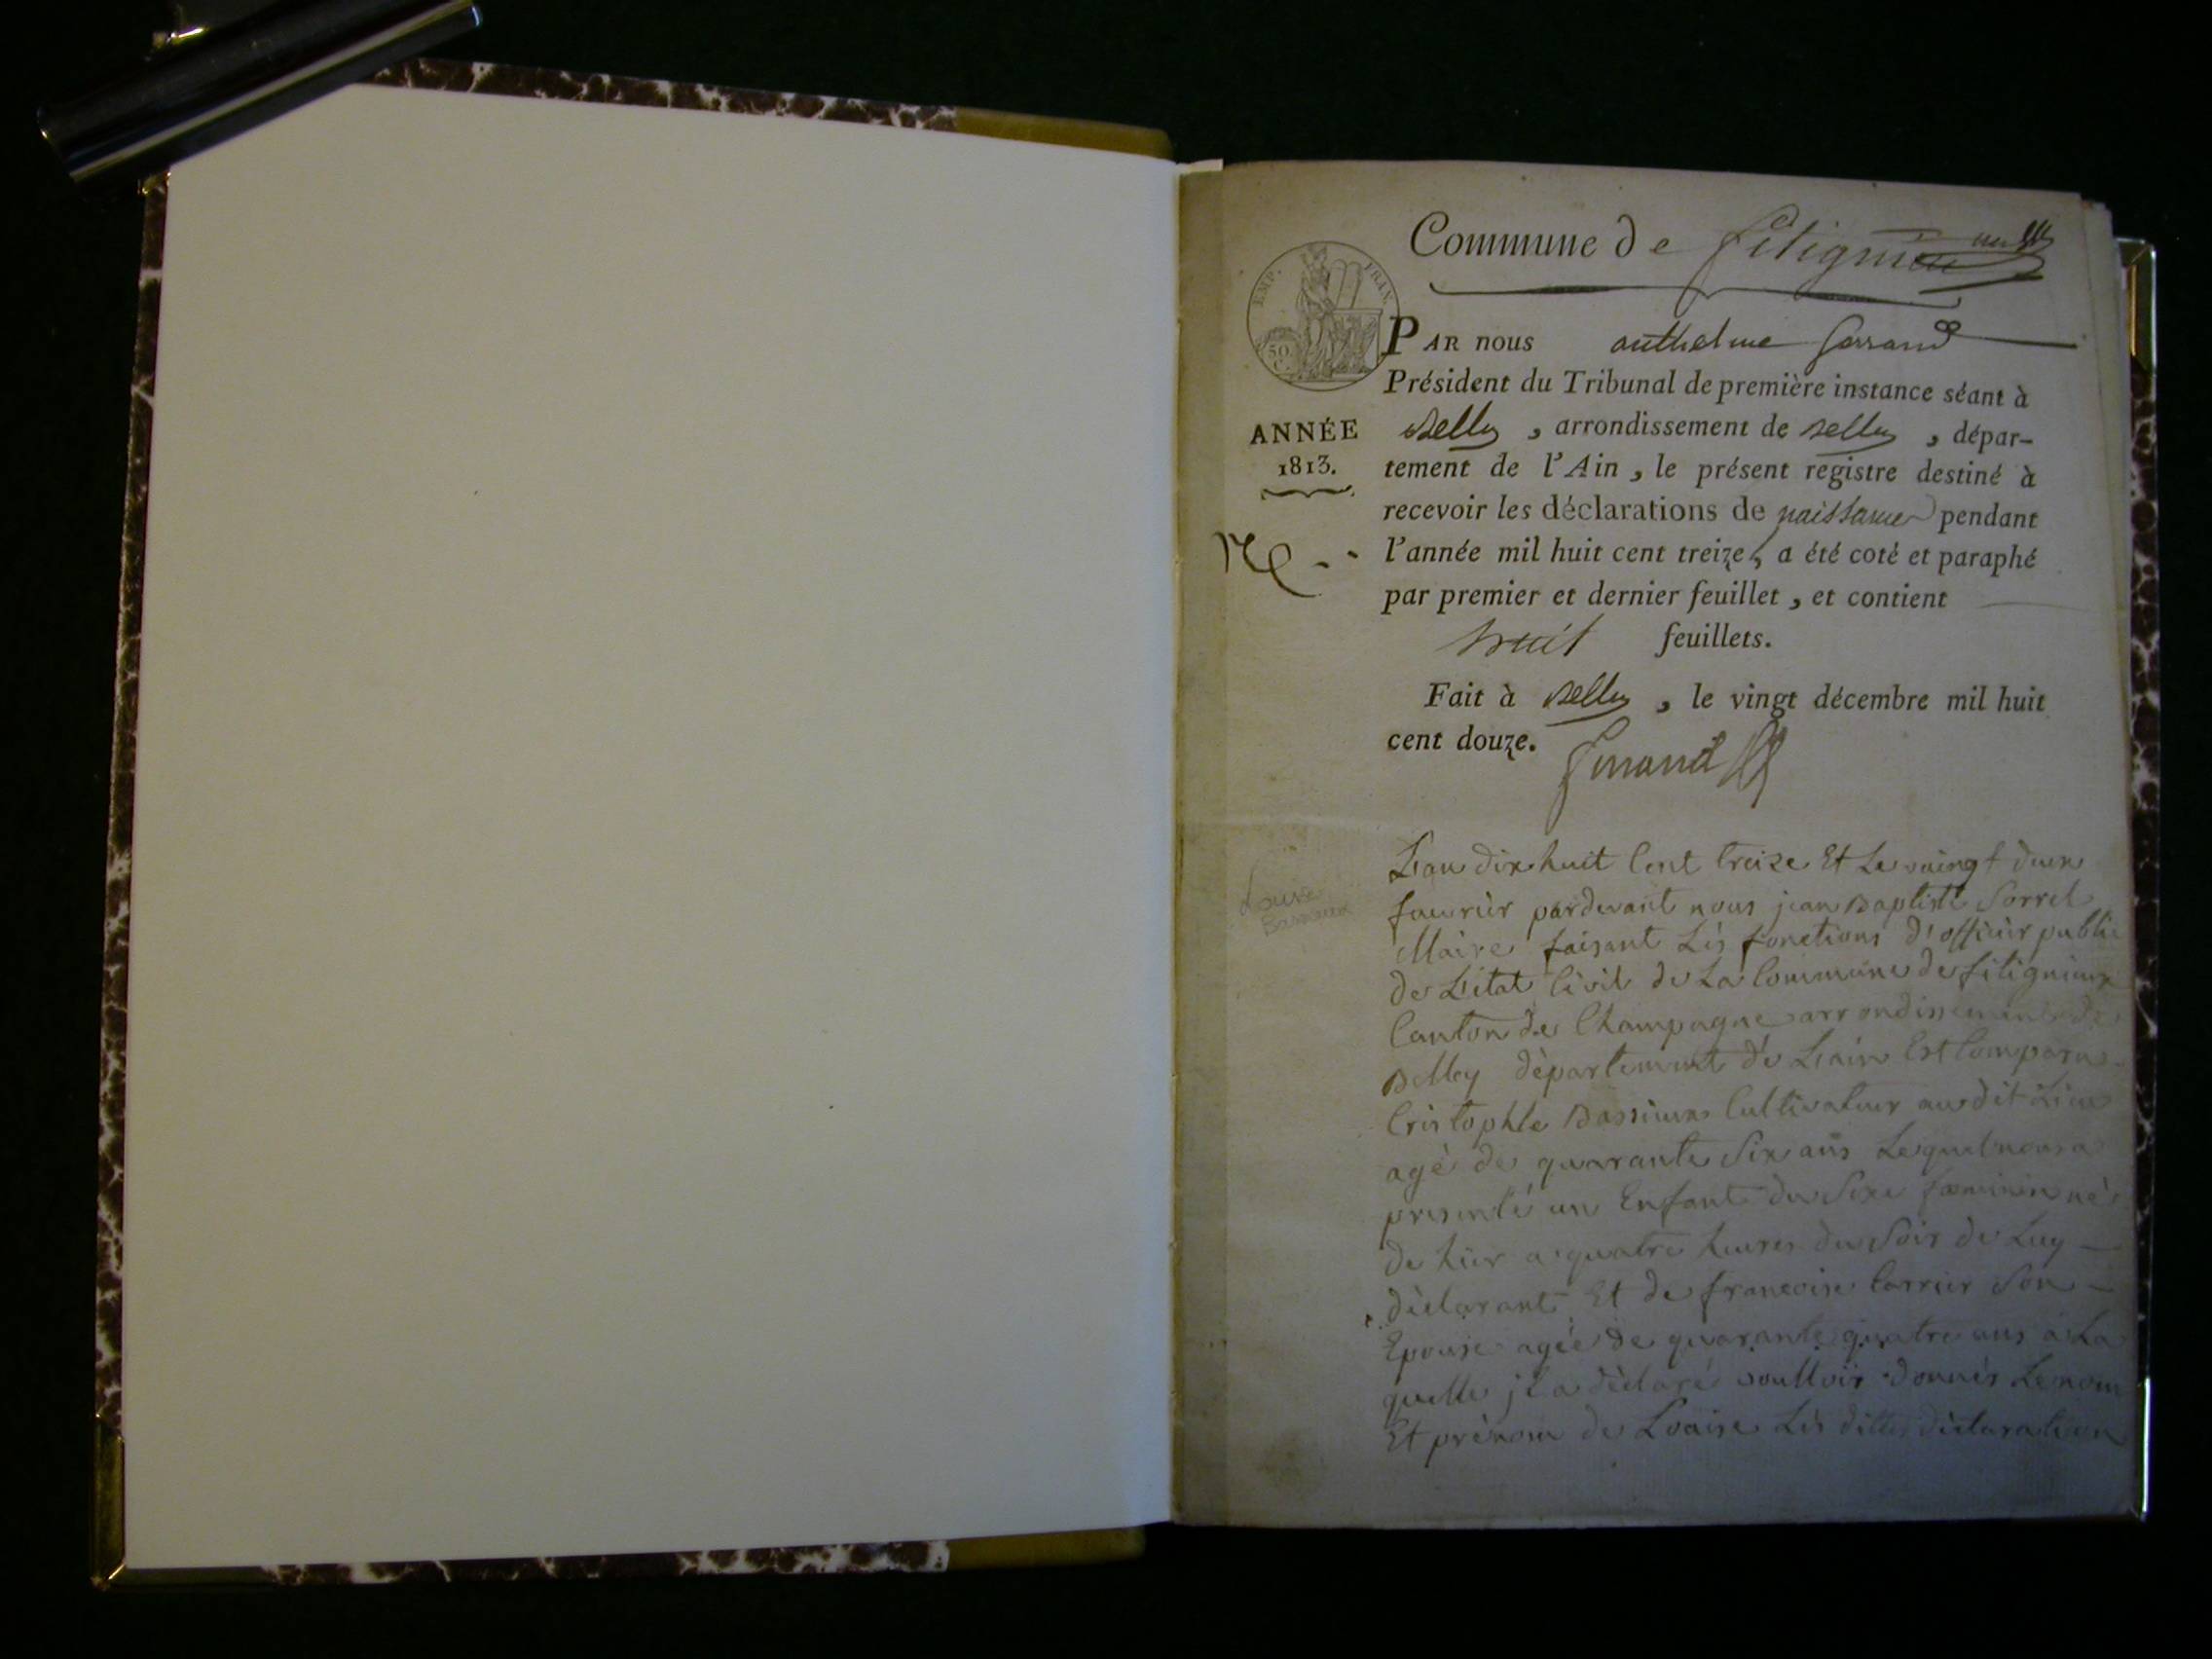 Commune de fitignieu
EMP. FRAN.
50
C.
PAR nous anthelme Garrand
Président du Tribunal de première instance séant à
Belley, arrondissement de Belley, dépar-
ANNÉE
1813.
tement de l'Ain, le présent registre destiné à
recevoir les déclarations de naissance pendant
l'année mil huit cent treize, a été coté et paraphé
par premier et dernier feuillet, et contient
huit feuillets.
Fait à Belley, le vingt décembre mil huit
cent douze.
Louise
L'an dix huit Cent treize Et Le vuingt deux
feuvrièr pardevant nous jean Baptiste Sorrel
Maire faisant Lés fonctions d'officièr public
de L'état Civil de La Commune de fitignieux
Canton de Champagne arrondissement de
Belley département de Lain Est Comparu
Cristophle Bassieux Cultivateur audit Lieu
agé de quarante Six ans Lequel nous a
presenté un Enfant du Sexe fœminin né
de hiér a quatre heures du Soir de Luy
déclarant Et de francoise Carrier Son
Epouse agée de quarante quatre ans a La
quelle jl a déclaré voulloir donnér Le nom
Et prénom de Louise Lés dittes déclaration